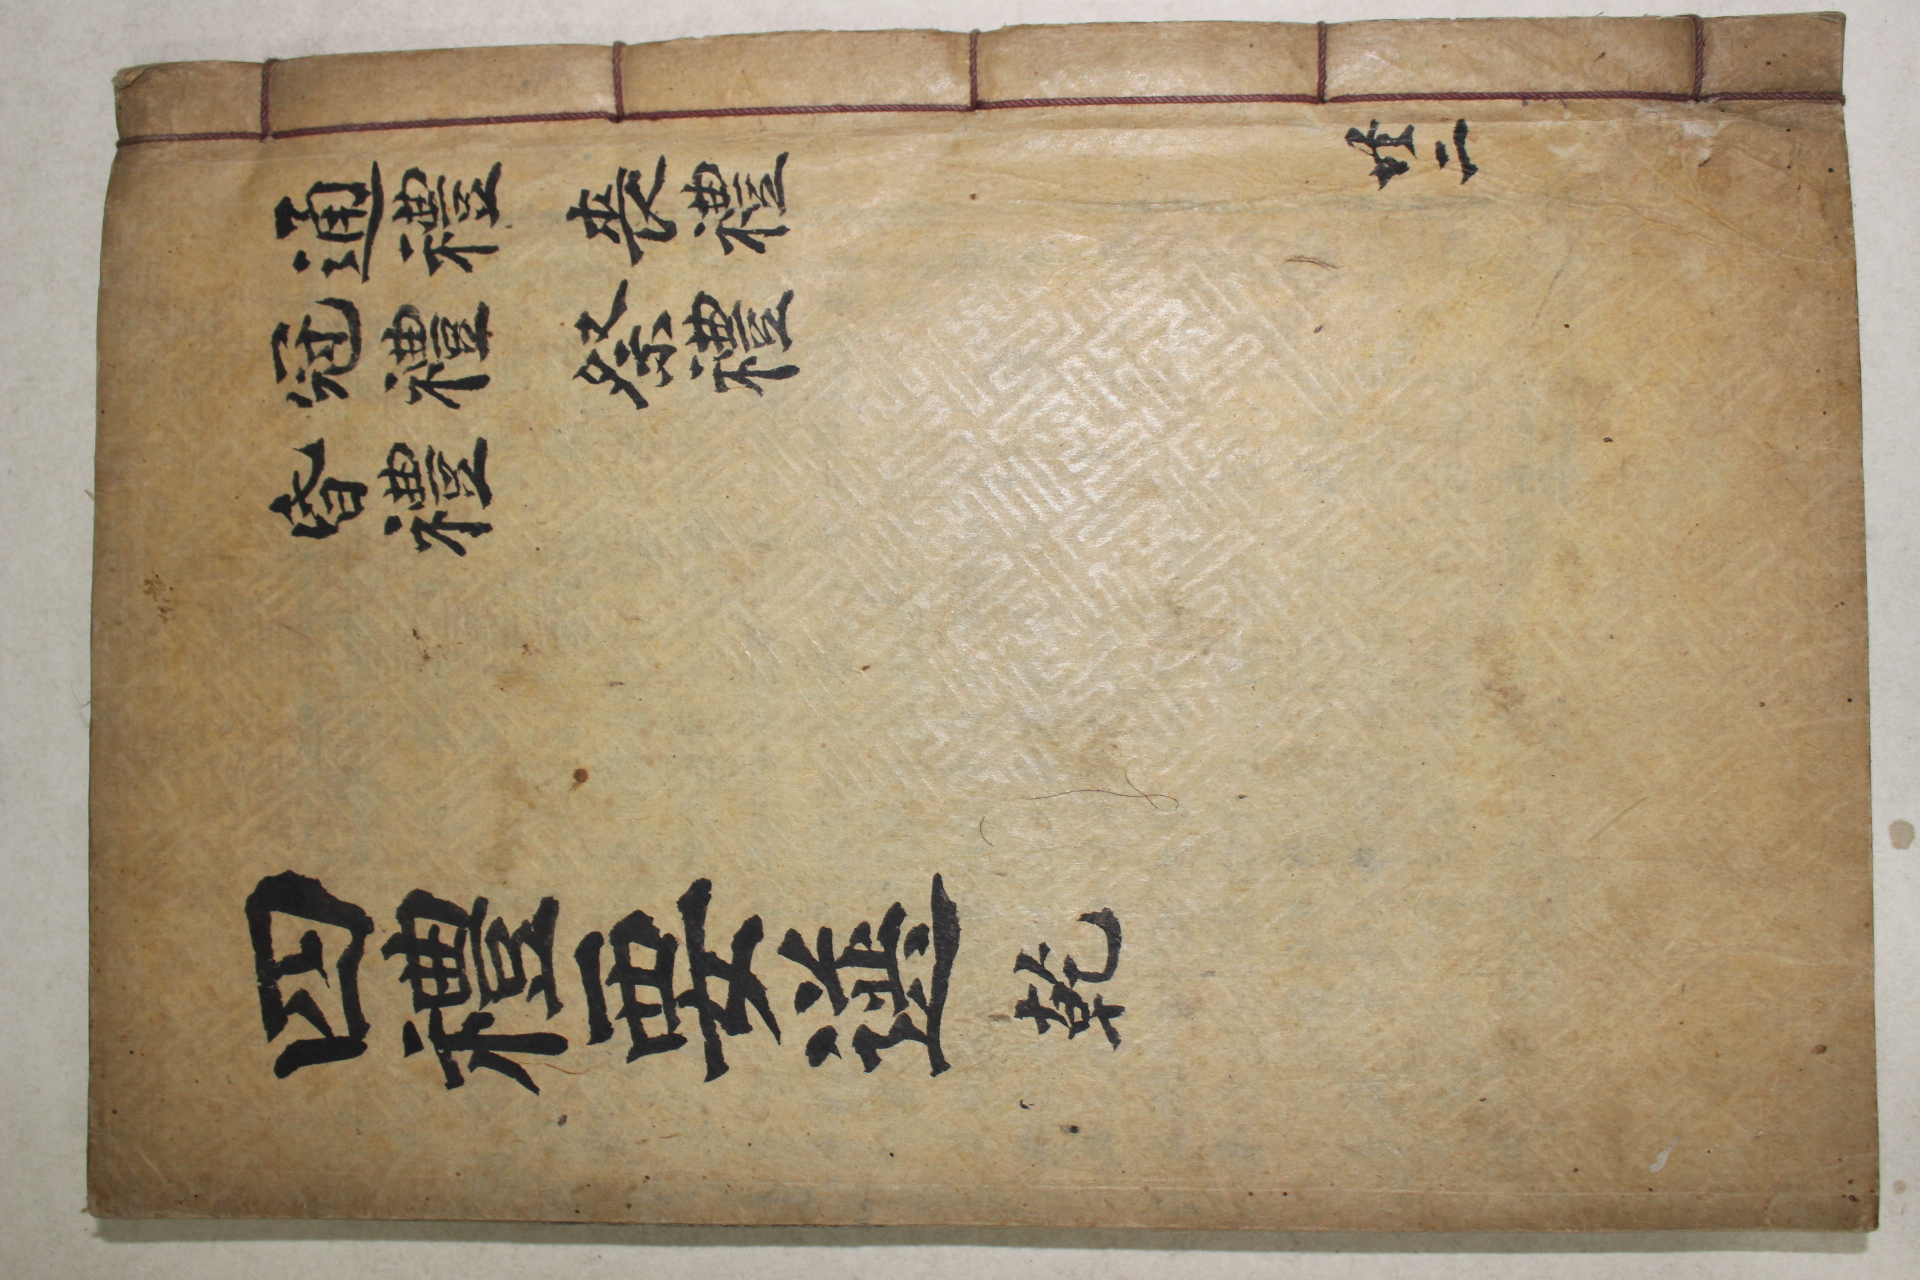 通禮 冠禮 昏禮
喪禮 祭禮
共二
四禮要
乾